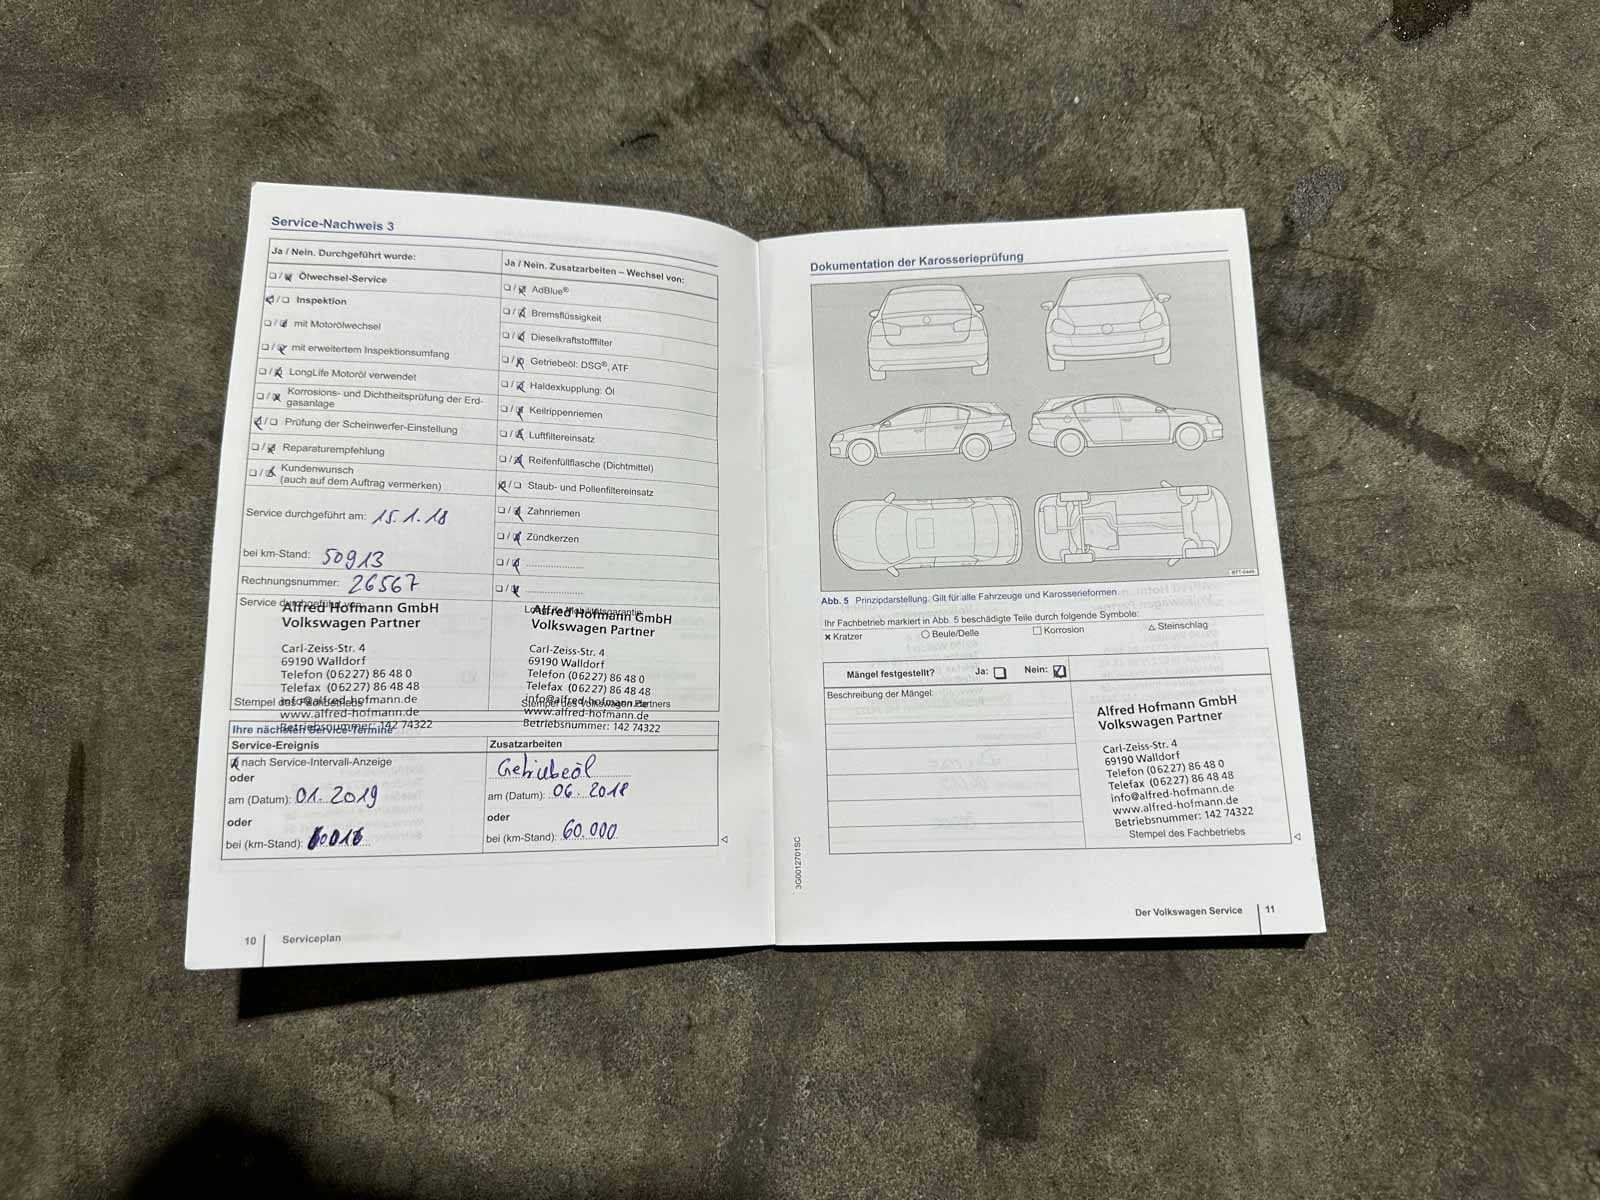 Service-Nachweis 3
Ja / Nein. Durchgeführt wurde:
Ölwechsel-Service
Inspektion
mit Motorölwechsel
mit erweitertem Inspektionsumfang
LongLife Motoröl verwendet
Korrosions- und Dichtheitsprüfung der Erd-
gasanlage
Prüfung der Scheinwerfer-Einstellung
Reparaturempfehlung
Kundenwunsch
(auch auf dem Auftrag vermerken)
Service durchgeführt am: 15.1.18
bei km-Stand: 50913
Rechnungsnummer: 26567
Service durchgeführt von:
Alfred Hofmann GmbH
Volkswagen Partner
Carl-Zeiss-Str. 4
69190 Walldorf
Telefon (06227) 86 48 0
Telefax (06227) 86 48 48
info@alfred-hofmann.de
Stempel des Fachbetriebs
www.alfred-hofmann.de
Betriebsnummer: 142 74322
Ja / Nein. Zusatzarbeiten – Wechsel von:
AdBlue®
Bremsflüssigkeit
Dieselkraftstofffilter
Getriebeöl: DSG®, ATF
Haldexkupplung: Öl
Keilrippenriemen
Luftfiltereinsatz
Reifenfüllflasche (Dichtmittel)
Staub- und Pollenfiltereinsatz
Zahnriemen
Zündkerzen
Alfred Hofmann GmbH
Volkswagen Partner
Carl-Zeiss-Str. 4
69190 Walldorf
Telefon (06227) 86 48 0
Telefax (06227) 86 48 48
info@alfred-hofmann.de
Stempel des Volkswagen Partners
www.alfred-hofmann.de
Betriebsnummer: 142 74322
Ihre nächsten Service-Termine
Service-Ereignis
nach Service-Intervall-Anzeige
oder
am (Datum): 01.2019
oder
bei (km-Stand):
Zusatzarbeiten
Getriebeöl
am (Datum): 06.2018
oder
bei (km-Stand): 60.000
10
Serviceplan
Dokumentation der Karosserieprüfung
BTT-0449
Abb. 5 Prinzipdarstellung. Gilt für alle Fahrzeuge und Karosserieformen
Ihr Fachbetrieb markiert in Abb. 5 beschädigte Teile durch folgende Symbole:
× Kratzer ○ Beule/Delle □ Korrosion △ Steinschlag
Mängel festgestellt? Ja: Nein:
Beschreibung der Mängel:
Alfred Hofmann GmbH
Volkswagen Partner
Carl-Zeiss-Str. 4
69190 Walldorf
Telefon (06227) 86 48 0
Telefax (06227) 86 48 48
info@alfred-hofmann.de
www.alfred-hofmann.de
Betriebsnummer: 142 74322
Stempel des Fachbetriebs
3G0012701SC
Der Volkswagen Service
11